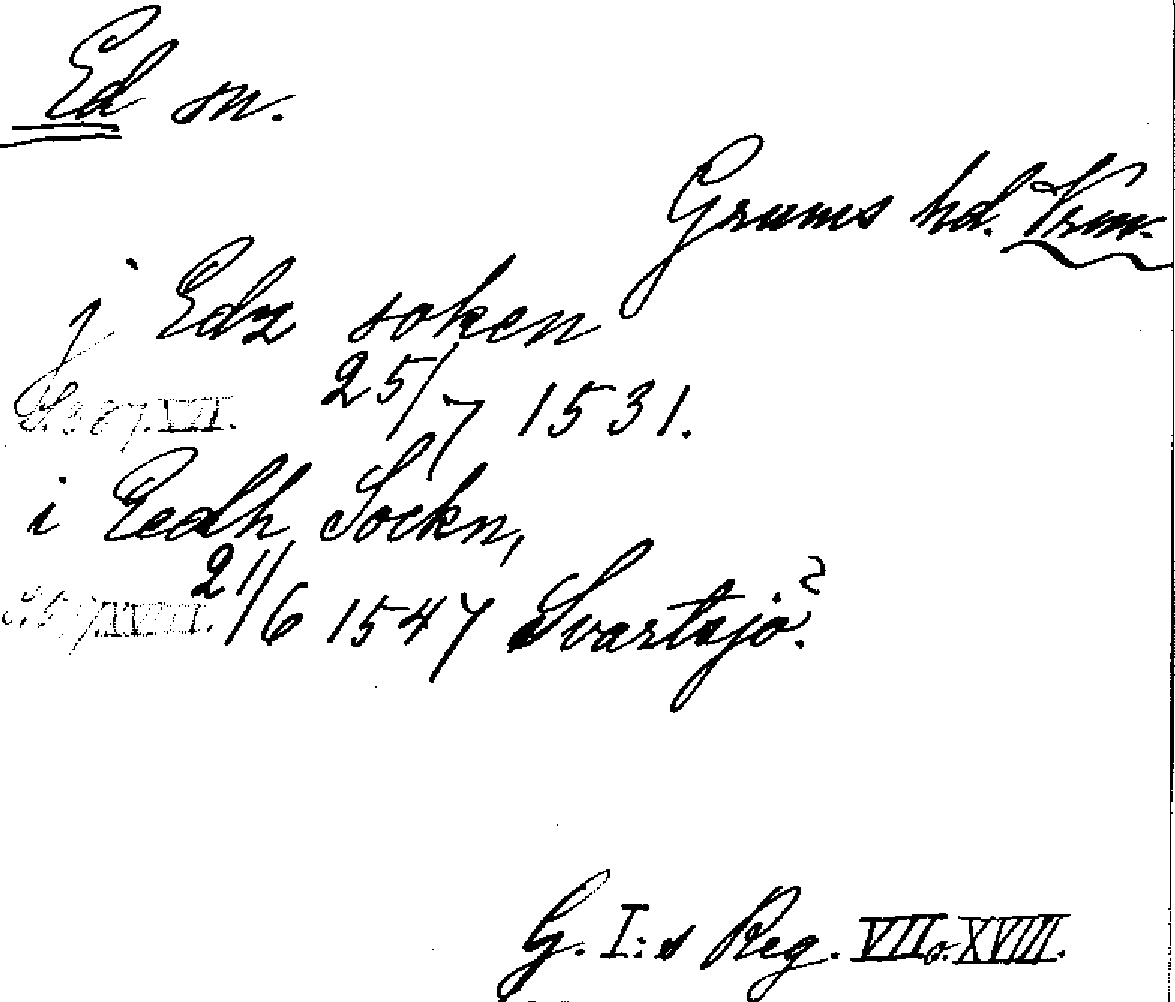 Ed sn.
Grums hd. Vrm.
j Edz soken
S. 387. VII. 25/7 1531.
i Eedh Sockn,
21/6 1547 Svartsjö.
G. I:s Reg. VII o. XVIII.